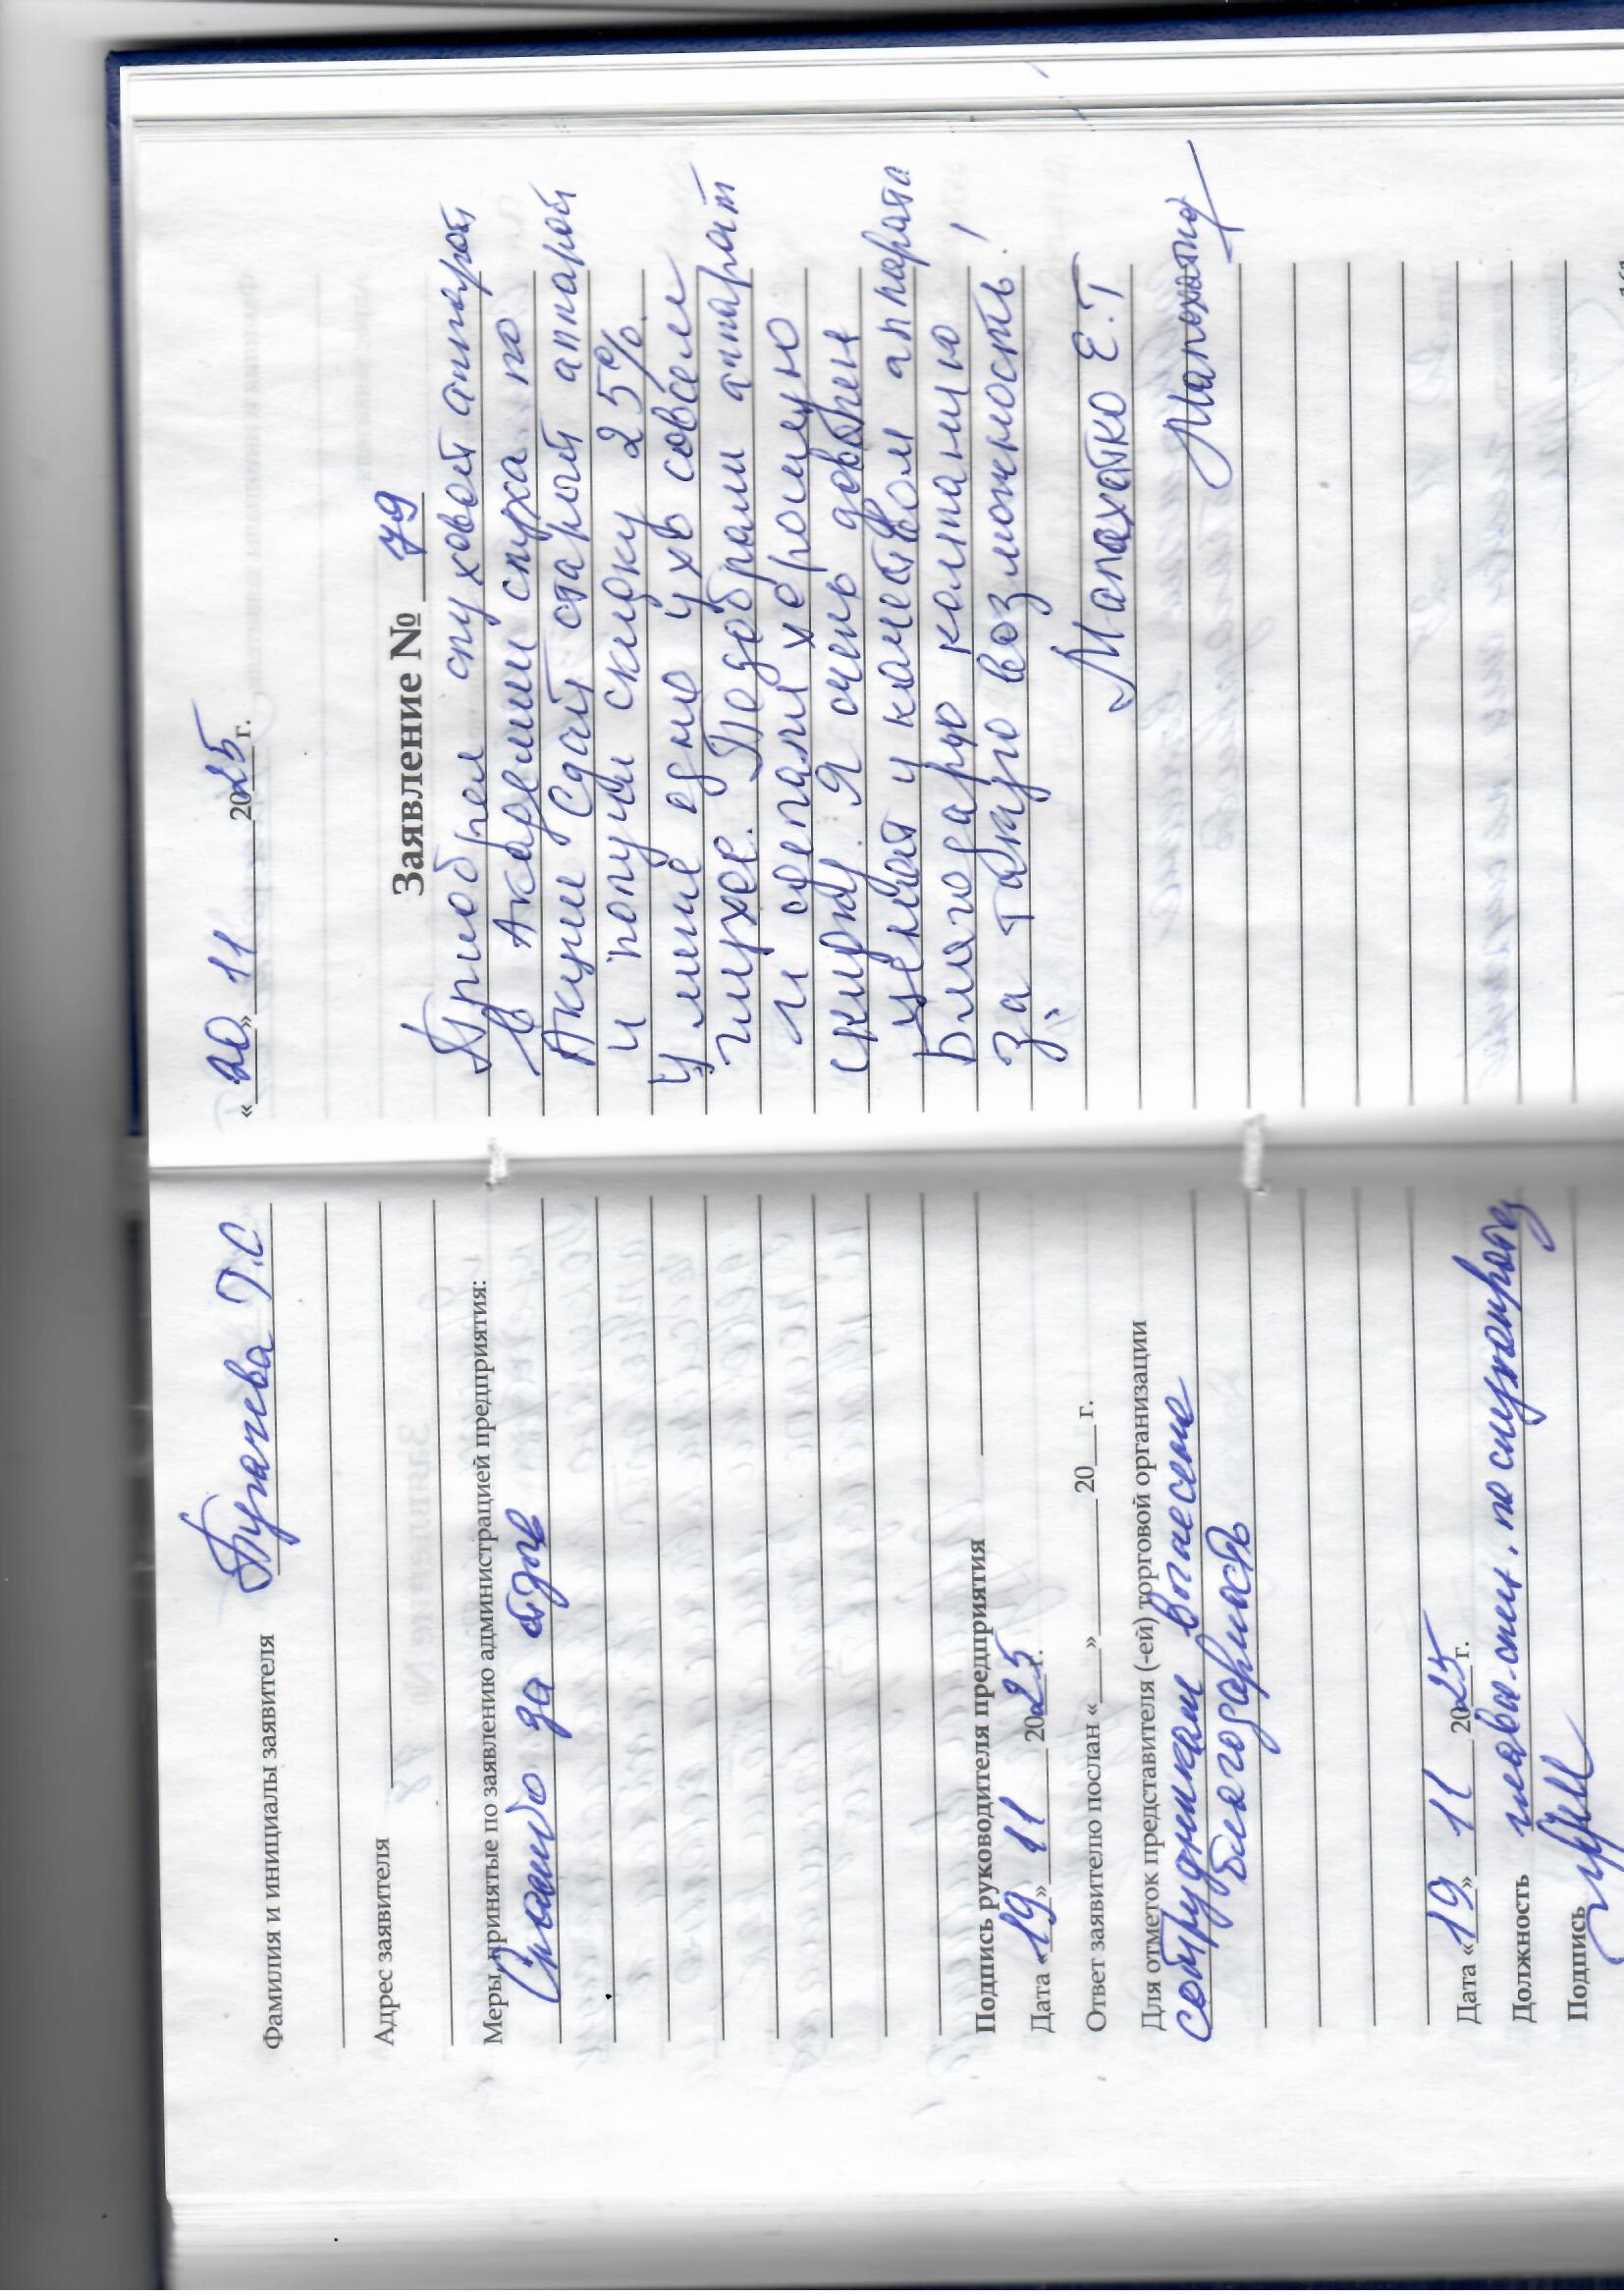 Фамилия и инициалы заявителя Пугачева Т.С
Адрес заявителя
Меры, принятые по заявлению администрацией предприятия:
Спасибо за отзыв
Подпись руководителя предприятия
Дата «19» 11 2025 г.
Ответ заявителю послан «___» ______ 20__ г.
Для отметок представителя (-ей) торговой организации
сотрудникам вынесена
благодарность
Дата «19» 11 2025 г.
Должность по слухопрот
Подпись
«20» 11 2025 г.
Заявление № 79
Приобрел слуховой аппарат
в Академии слуха по
Акции Сдай старый аппарат
и получи скидку 25%.
У меня одно ухо совсем
глухое. Подобрали аппарат
и сделали хорошую
скидку. Я очень доволен
ценой и качеством аппарата
Благодарю компанию
за такую возможность!
Малахатко Е.Т